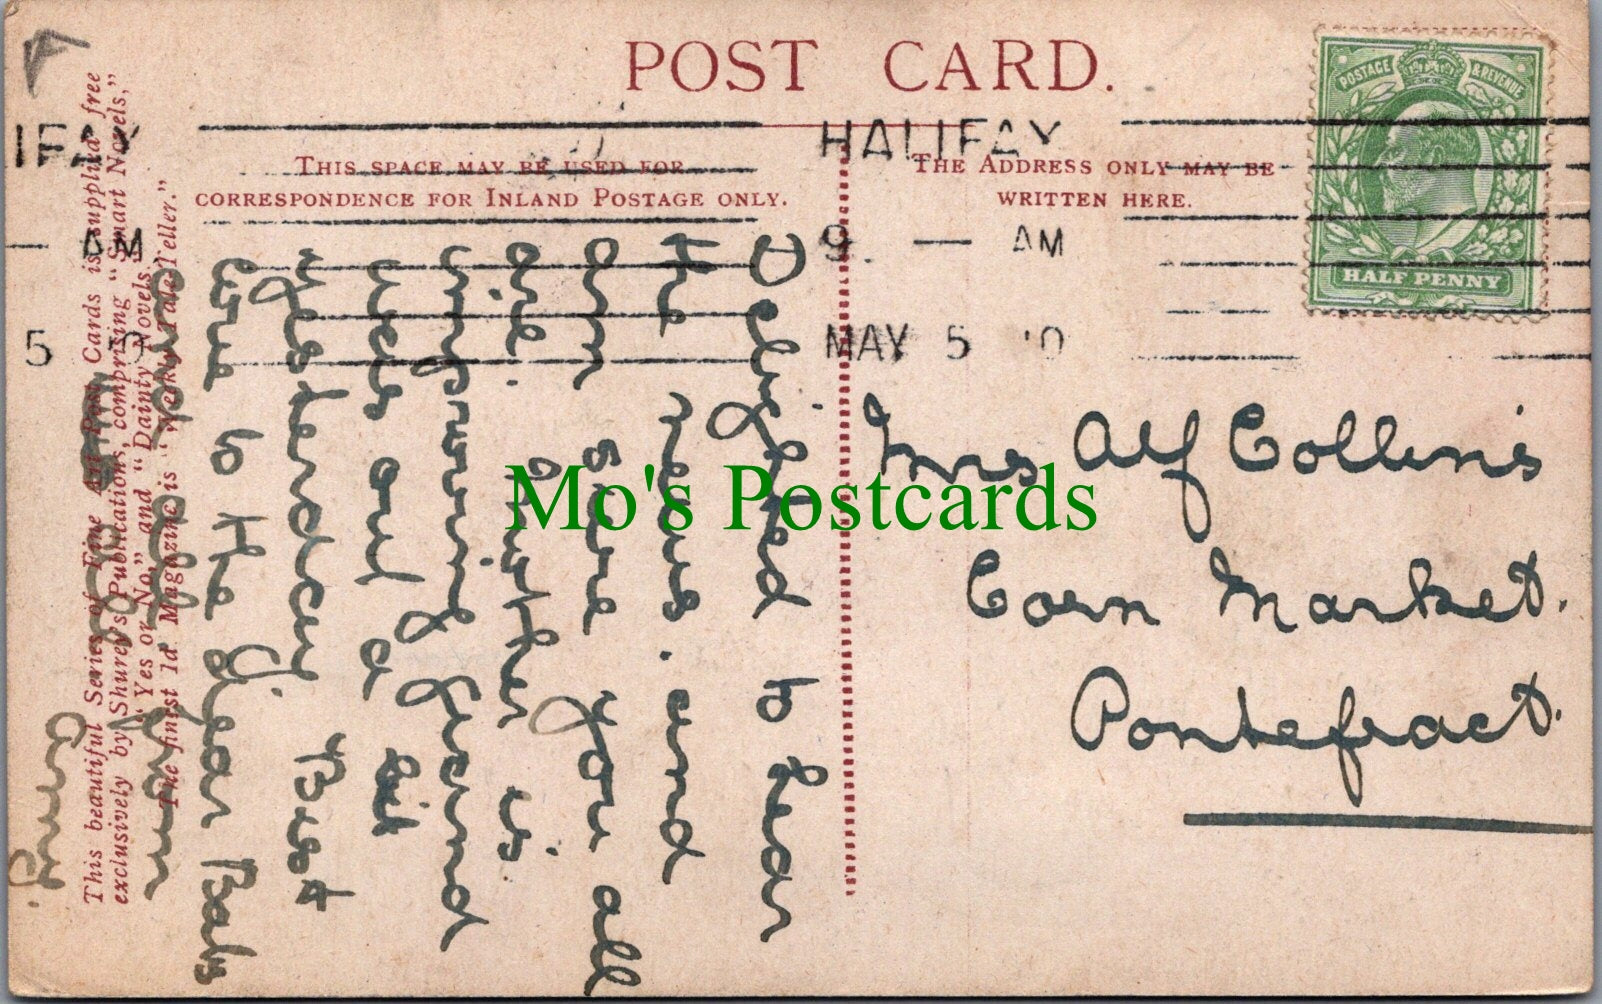 POST CARD.
THIS SPACE MAY BE USED FOR
CORRESPONDENCE FOR INLAND POSTAGE ONLY.
THE ADDRESS ONLY MAY BE
WRITTEN HERE.
POSTAGE & REVENUE
HALF PENNY
IFAY
AM
5 '0
HALIFAX
9 — AM
MAY 5 '0
Delighted to hear
the news. and
am sure you all
are. Mother is
improving and
was out a bit
yesterday. Best
love to the dear Baby
from
Amy.
Mrs Alf Collins
Corn Market.
Pontefract.
This beautiful Series of Fine Art Post Cards is supplied free
exclusively by Shurey's Publications, comprising "Smart Novels,"
"Yes or No," and "Dainty Novels."
The finest 1d Magazine is "Weekly Tale-Teller."
Mo's Postcards